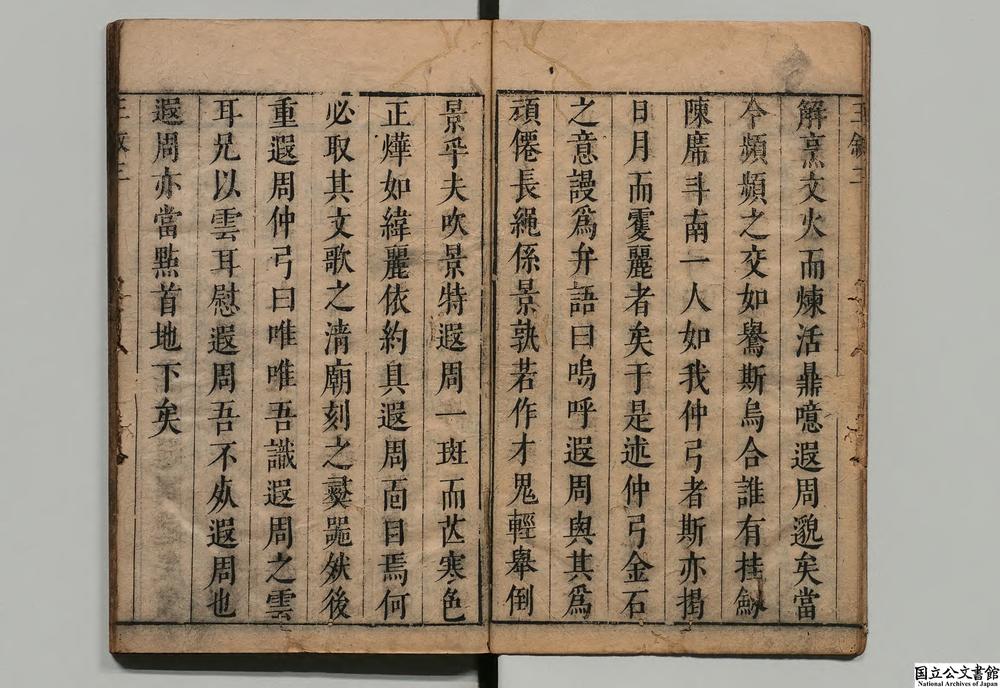 解烹文火而煉活鼎噫遐周邈矣當
今頻頻之交如鷽斯烏合誰有挂劒
陳席斗南一人如我仲弓者斯亦揭
日月而雙麗者矣于是述仲弓金石
之意謾為弁語曰嗚呼遐周與其為
頑僊長繩係景孰若作才鬼輕舉倒
景乎夫吹景特遐周一斑而芒寒色
正燁如緯麗依約具遐周面目焉何
必取其文歌之淸廟刻之彝噐然後
重遐周仲弓曰唯唯吾識遐周之雲
耳兄以雲耳慰遐周吾不必遐周也
遐周亦當點首地下矣
王叙二
王叙三
国立公文書館
National Archives of Japan